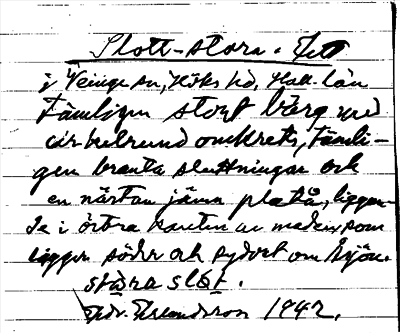 Slott-stora.
i Veinge sn, Höks hd, Hall. län
Tämligen stort bärg med
cirkelrund omkrets, tämli-
gen branta sluttningar och
en nästan jämn platå, liggan-
de i östra kanten av maden som
ligger söder och sydost om Sjön.
stora slot.
1942.